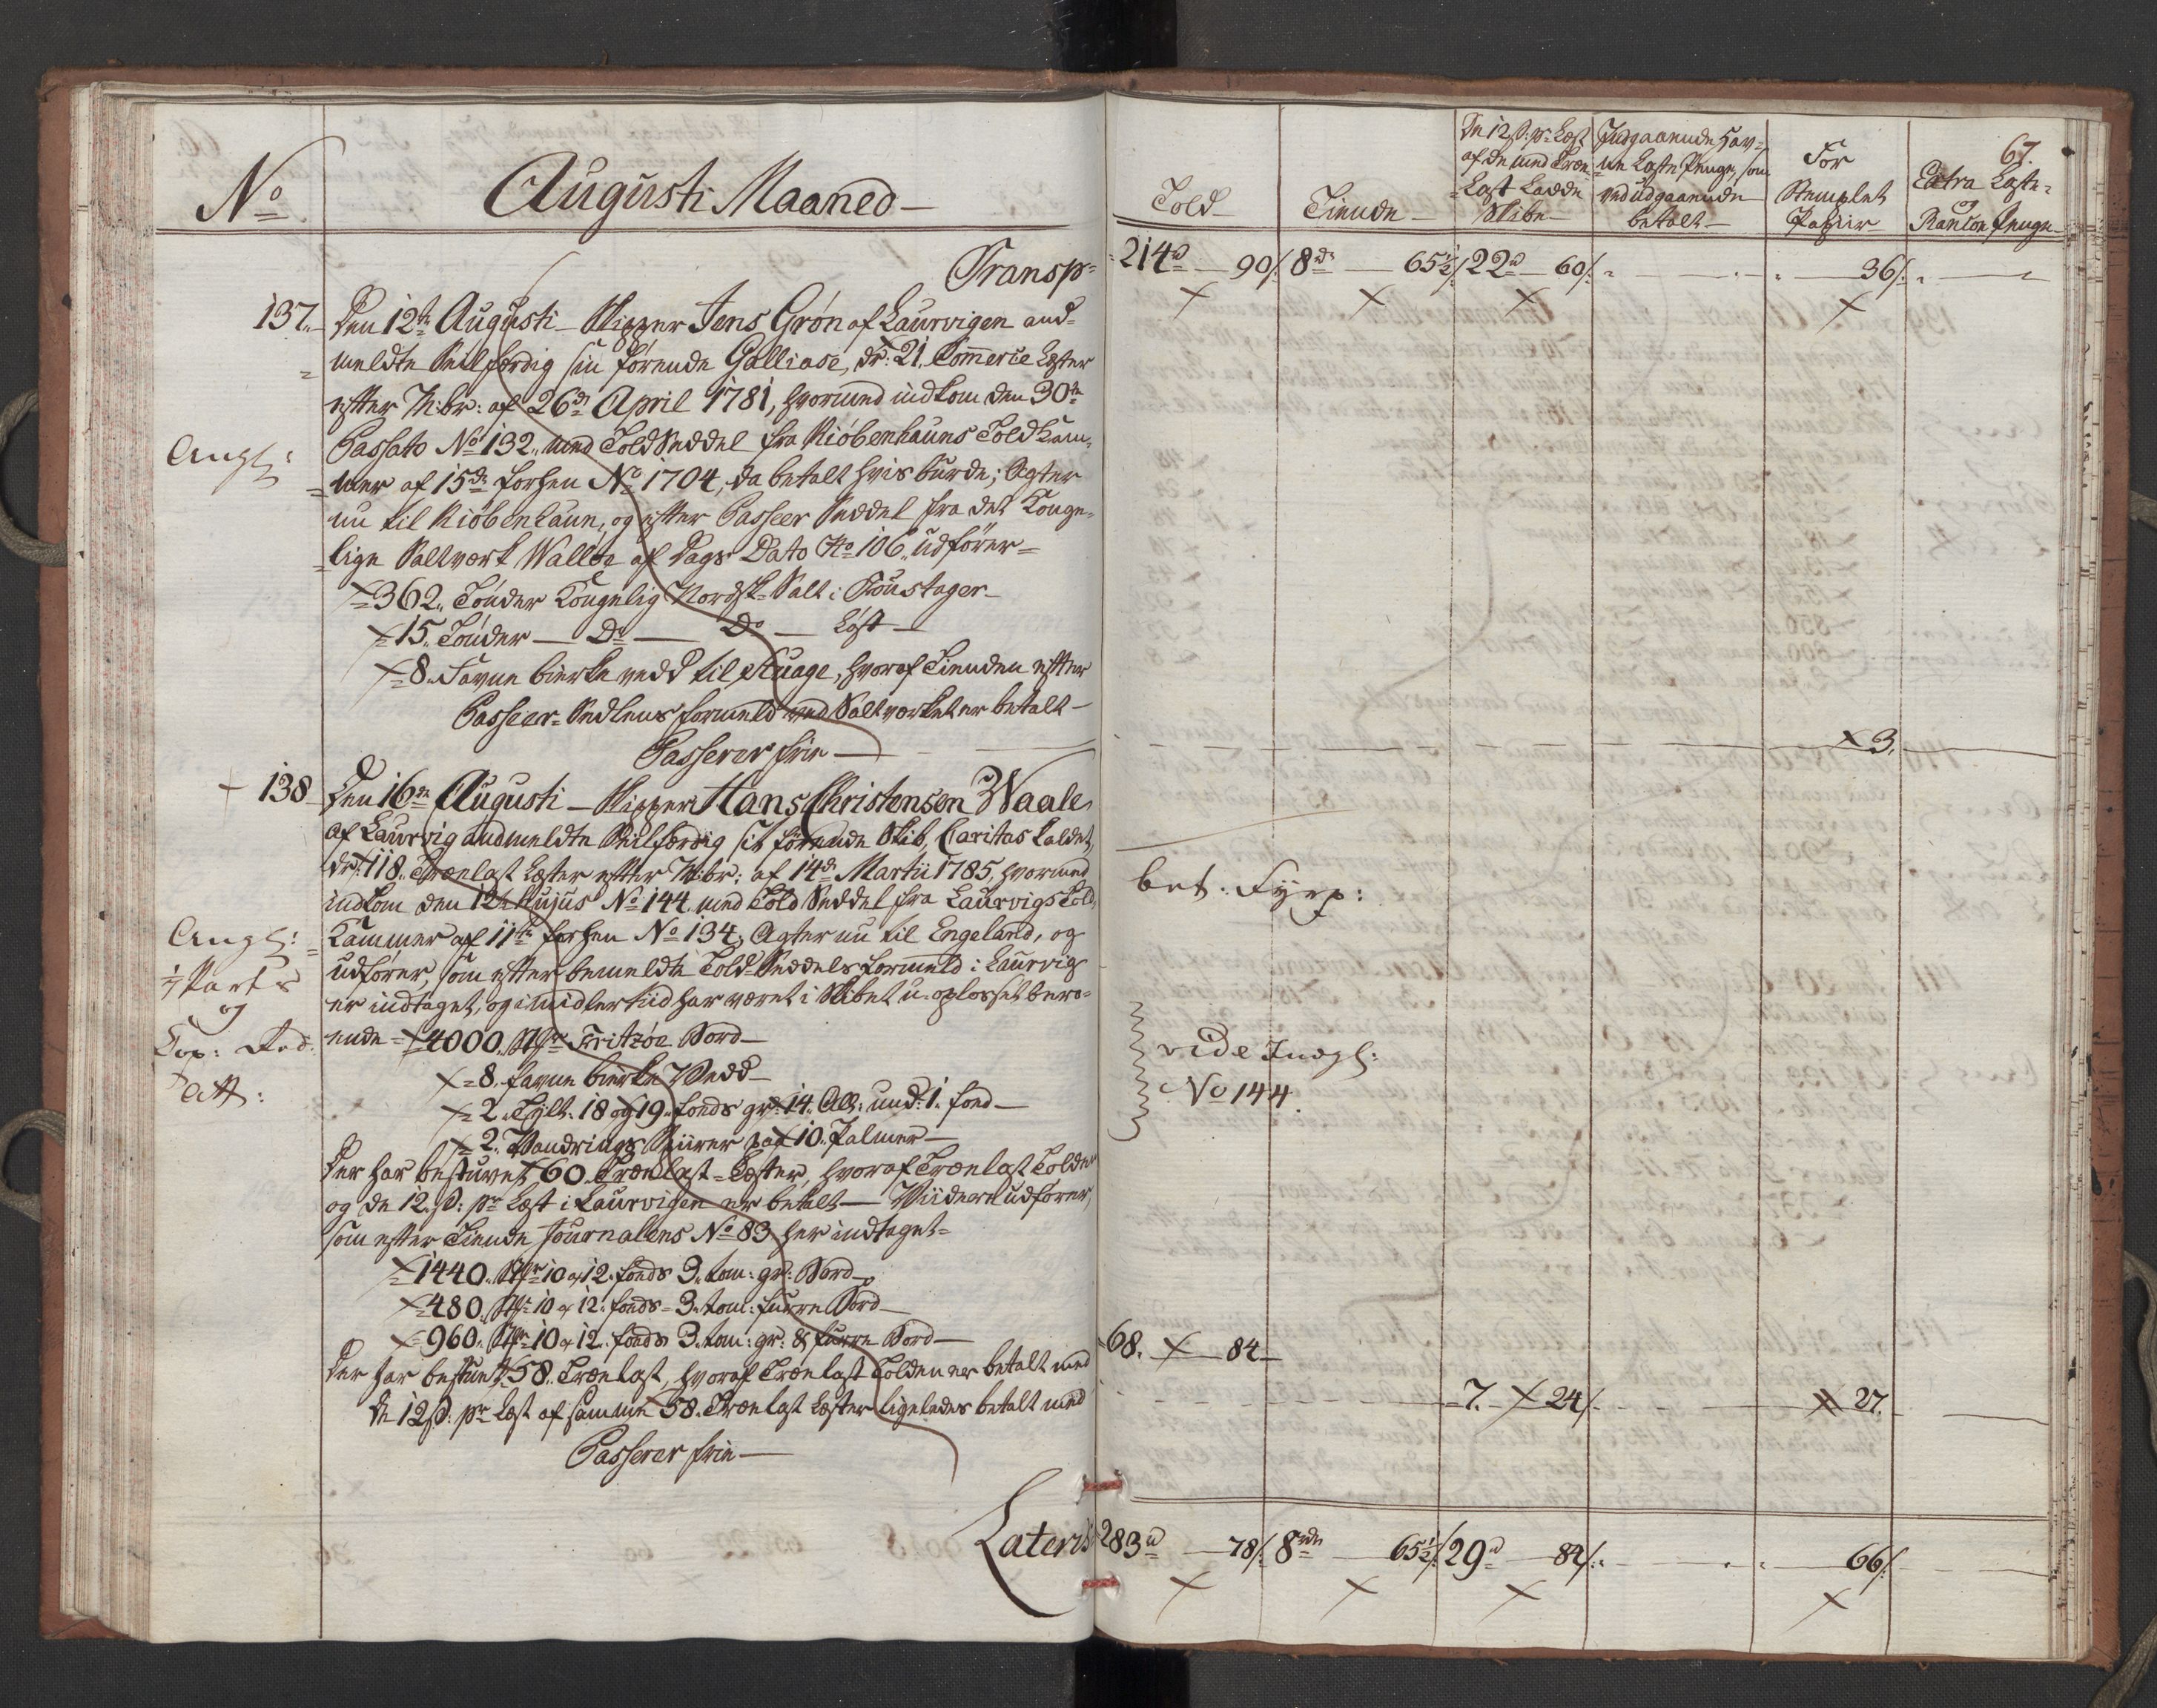 No
Augusti Maaned
Transp:
137. Den 12te Augusti Skipper Jens Grøn af Laurvigen and-
meldte Seilfærdig sin førende Galliase, dr: 21. Commerce Læster
efter M:br: af 26de April 1781, hvormed indkom den 30te
Passato No 132. med Told Seddel fra Kiøbenhauns Told Kam-
Angl:
mer af 15de forhen No 1704, da betalt hvis burde; Agter
nu til Kiøbenhaun, og efter Passeer Seddel fra det Konge-
lige Saltværk Walløe af Dags Dato No 106. udfører
362. Tønder Kongelig Nordsk Salt i Foustager
15. Tønder Do Do Løst
8. Favne bierke vedd til Stuage, hvoraf Tienden efter
Passeer-Sedlens formeld ved Saltværket er betalt
Passerer frie
138 Den 16de Augusti Skipper Hans Christensen Waale
af Laurvig andmeldte Seilfærdig sit førende Skib, Caritas kaldet,
dr: 118. Trælast Læster efter M:br: af 14de Martii 1785, hvormed
indkom den 12te Hujus No 144 med Told Seddel fra Laurvigs Told
Angl:
Kammer af 11te forhen No 134, Agter nu til Engeland, og
udfører, som efter bemeldte Told-Seddels formeld i Laurvig
er indtaget, og imidlertiid har været i Skibet u-oplosset bero-
og
ende 4000. St: Fritzøe Bord
8. favne bierke Vedd
Att:
2. Tylt. 18 og 19. fods gr: 14. All: und: 1. fod
2. Vandrings Spiirer paa 10. Palmer
Der har bestuvet 60. Trælast-Læster, hvoraf Trælast Tolden
og de 12. s: pr Læst i Laurvigen er betalt Viidere udfører,
som efter Tiende Journalens No 83 her indtaget
1440. St: 10 a 12. fods 3. tom: gr: Bord
480. St: 10 a 12. fods 3. tom: furre Bord
960. St: 10 a 12. fods 3. tom: gr: & furre Bord
Der har bestuet 58. Trælast, hvoraf Trælast Tolden er betalt med
De 12s: pr Læst af samme 58. Trælast Læster ligeledes betalt med
Passerer frie
Lateris
67.
Told
Tiende
De 12s: pr Læst
af de med Træ-
Last Ladde
Skibe
Indgaaende Hav-
ne Læste Penge, som
ved udgaaende
betalt
For
Stemplet
Papiir
Extra Læste-
og
Rancon Penge
214 90 8 65½ 22 60 36
3.
bet: Fyrp:
vide Indgl:
No 144
68. 84
7. 24 27.
283 78 8 65½ 29 84 66